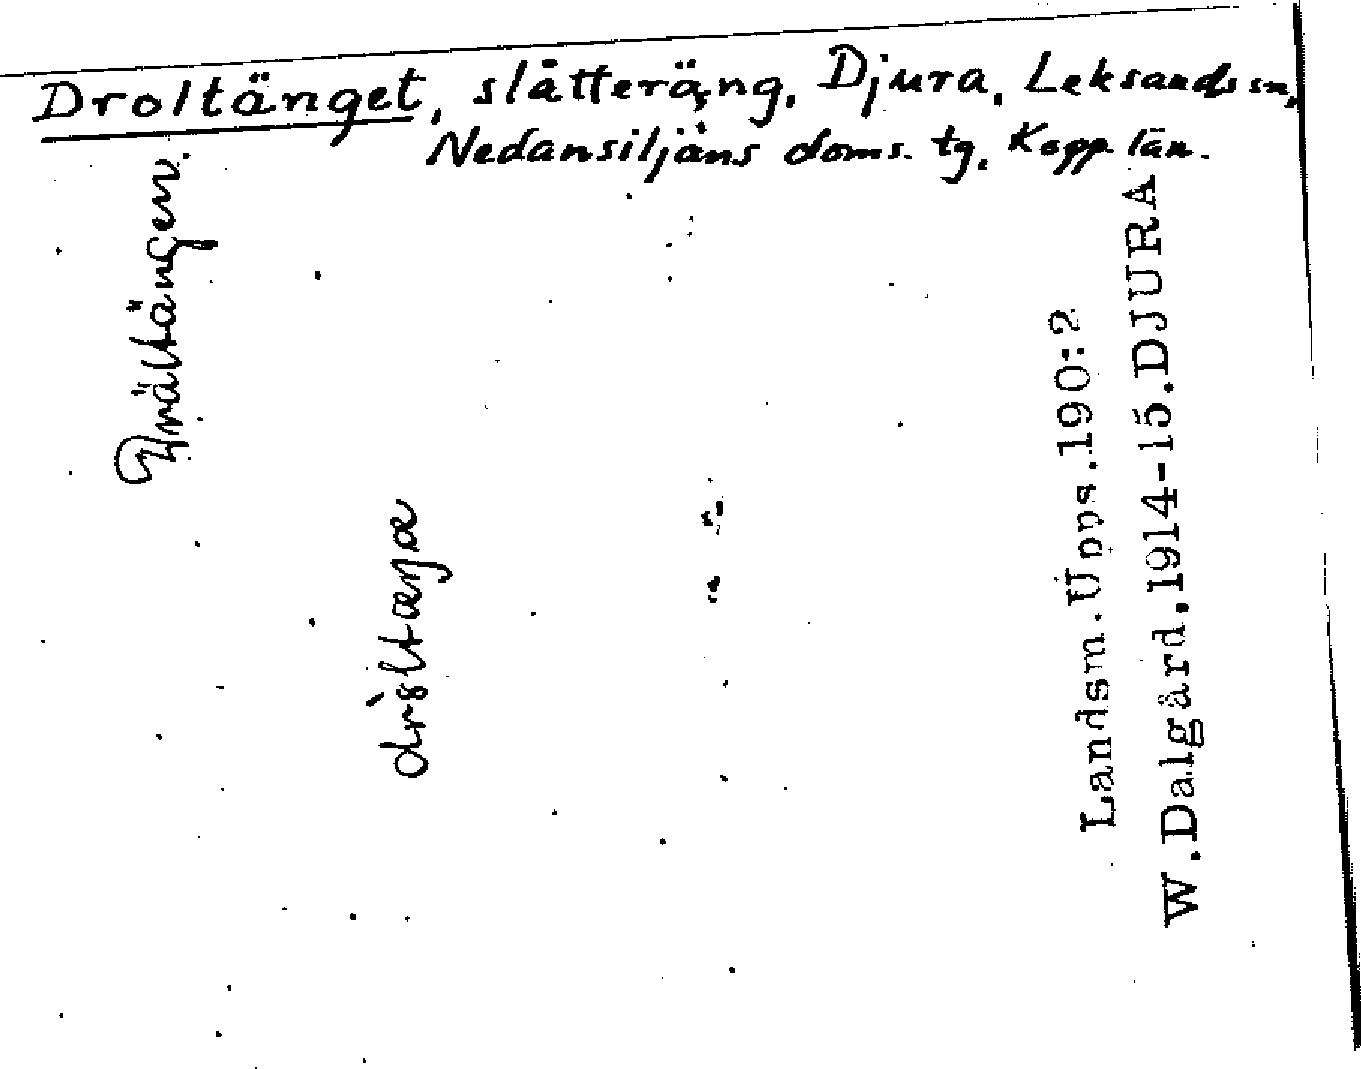 Droltänget, slåtteräng, Djura, Leksands sn,
Nedansiljans doms. tg. Kopp. län.
Trältängen.
Landsm.Upps.190:2
W.Dalgård.1914-15.DJURA